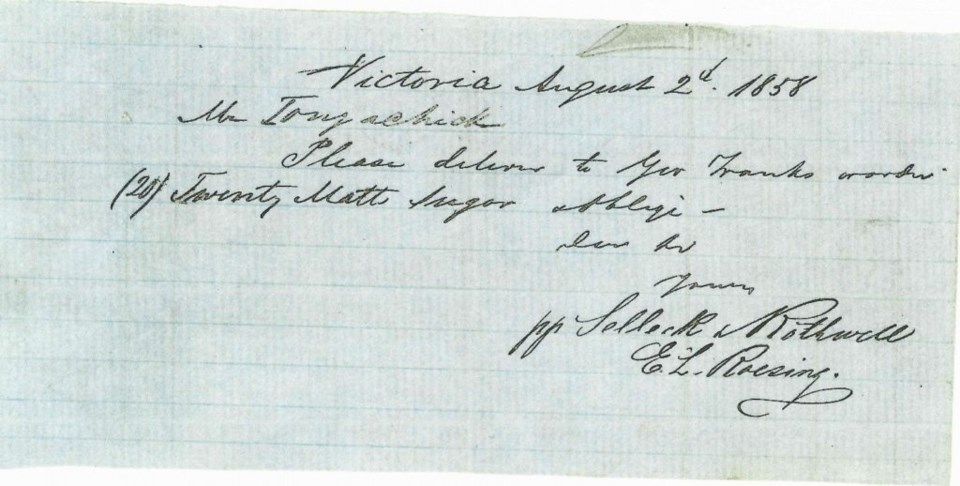 Victoria August 2d. 1858
Mr Tongachick
Please deliver to Geo Franks order
(20) Twenty Matt Sugar & oblige —
Yours
pp Selleck & Rothwell
E. L. Roesing.